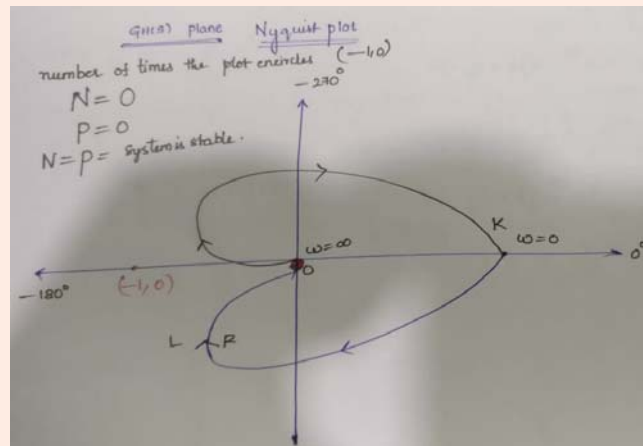 GH(s) plane Nyquist plot
number of times the plot encircles (-1,0)
N=0
P=0
N=P= system is stable.
-270°
K
ω=∞
ω=0
0°
0
-180°
(-1,0)
L R